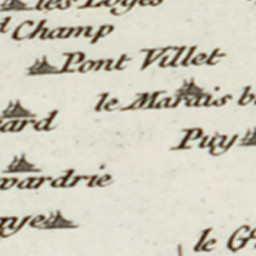 les Loges
d Champ
Pont Villet
le Marais b
ard
Puy
wardrie
aye
le G